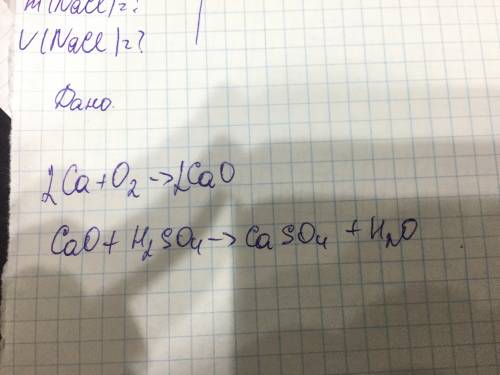 m(NaCl)=?
V(NaCl)=?
Дано.
2Ca+O₂→2CaO
CaO+H₂SO₄→CaSO₄+H₂O